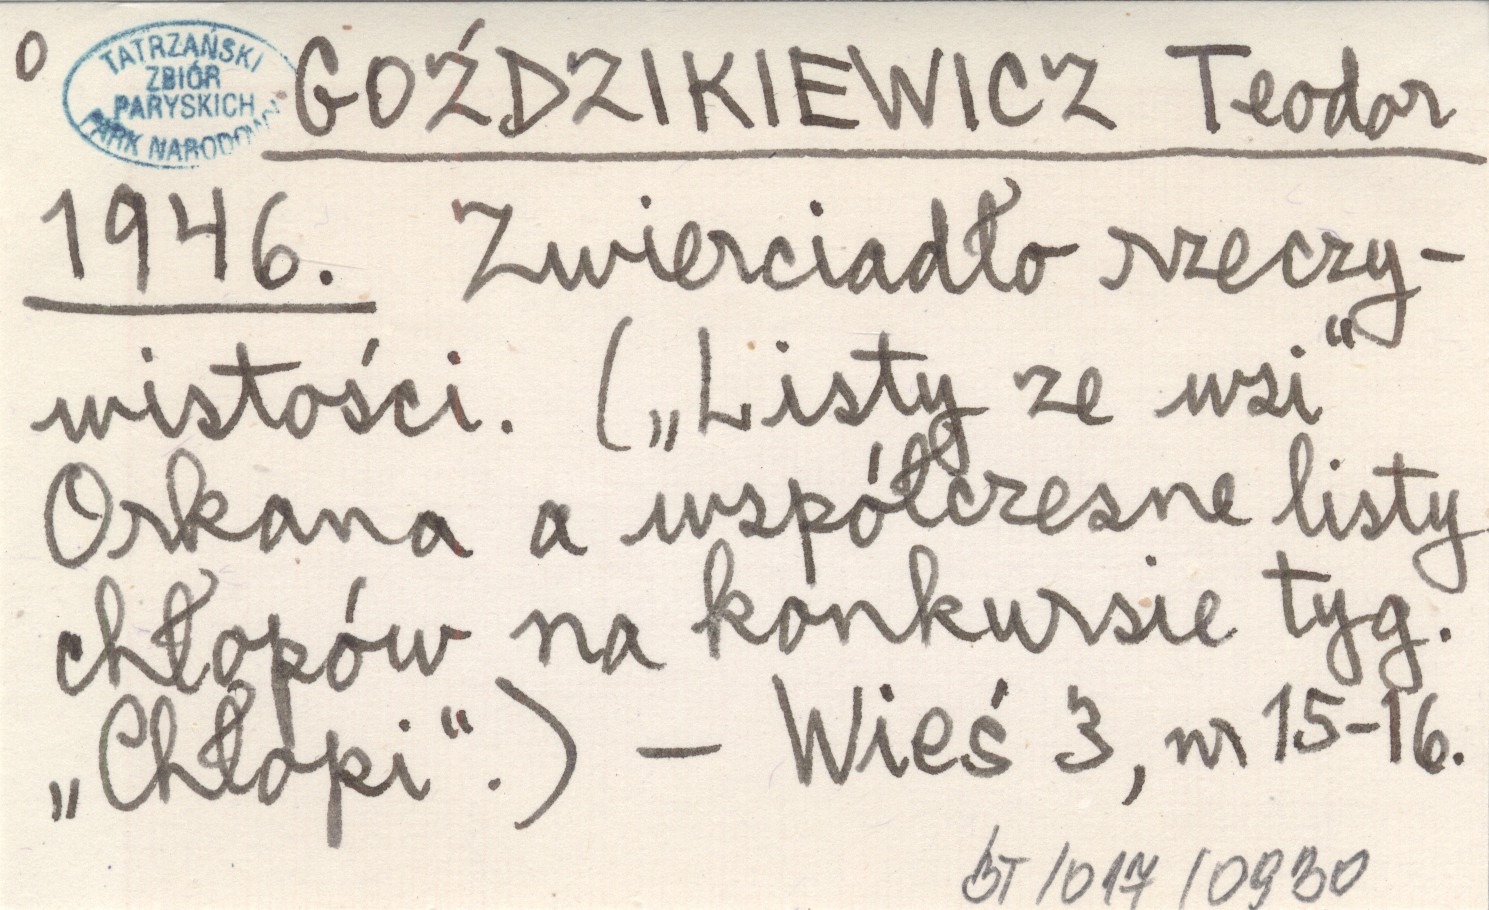 0
TATRZAŃSKI
ZBIÓR
PARYSKICH
PARK NARODOWY
GOŹDZIKIEWICZ Teodor
1946. Zwierciadło rzeczy-
wistości. („Listy ze wsi“
Orkana a współczesne listy
chłopów na konkursie tyg.
„Chłopi“.) — Wieś 3, nr 15-16.
BT/017/0930